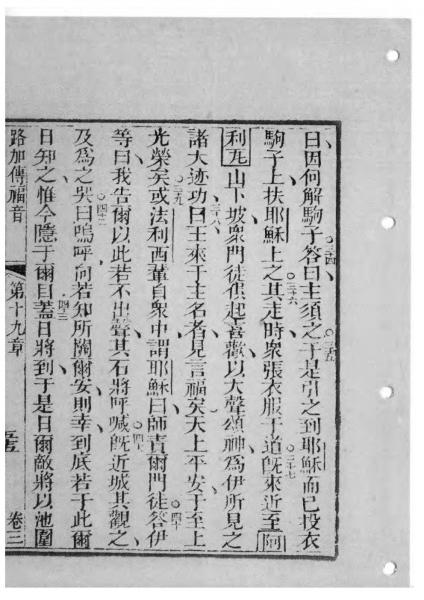 曰因何解駒子答曰主須之于是引之到耶穌而已投衣
駒子上扶耶穌上之其走時衆張衣服于道旣來近至阿
利瓦山下坡衆門徒俱起喜歡以大聲頌神爲伊所見之
諸大迹功曰王來于主名者見言福矣天上平安于至上
光榮矣或法利西輩自衆中謂耶穌曰師責爾門徒答伊
等曰我告爾以此若不出聲其石將呼喊旣近城其觀之
及爲之哭曰嗚呼向若知所關爾安則幸到底若于此爾
日知之惟今隱于爾目蓋日將到于是日爾敵將以池圍
路加傳福音 第十九章 卷三
三四
三五
三六
三七
三八
三九
四十
四一
四二
四三